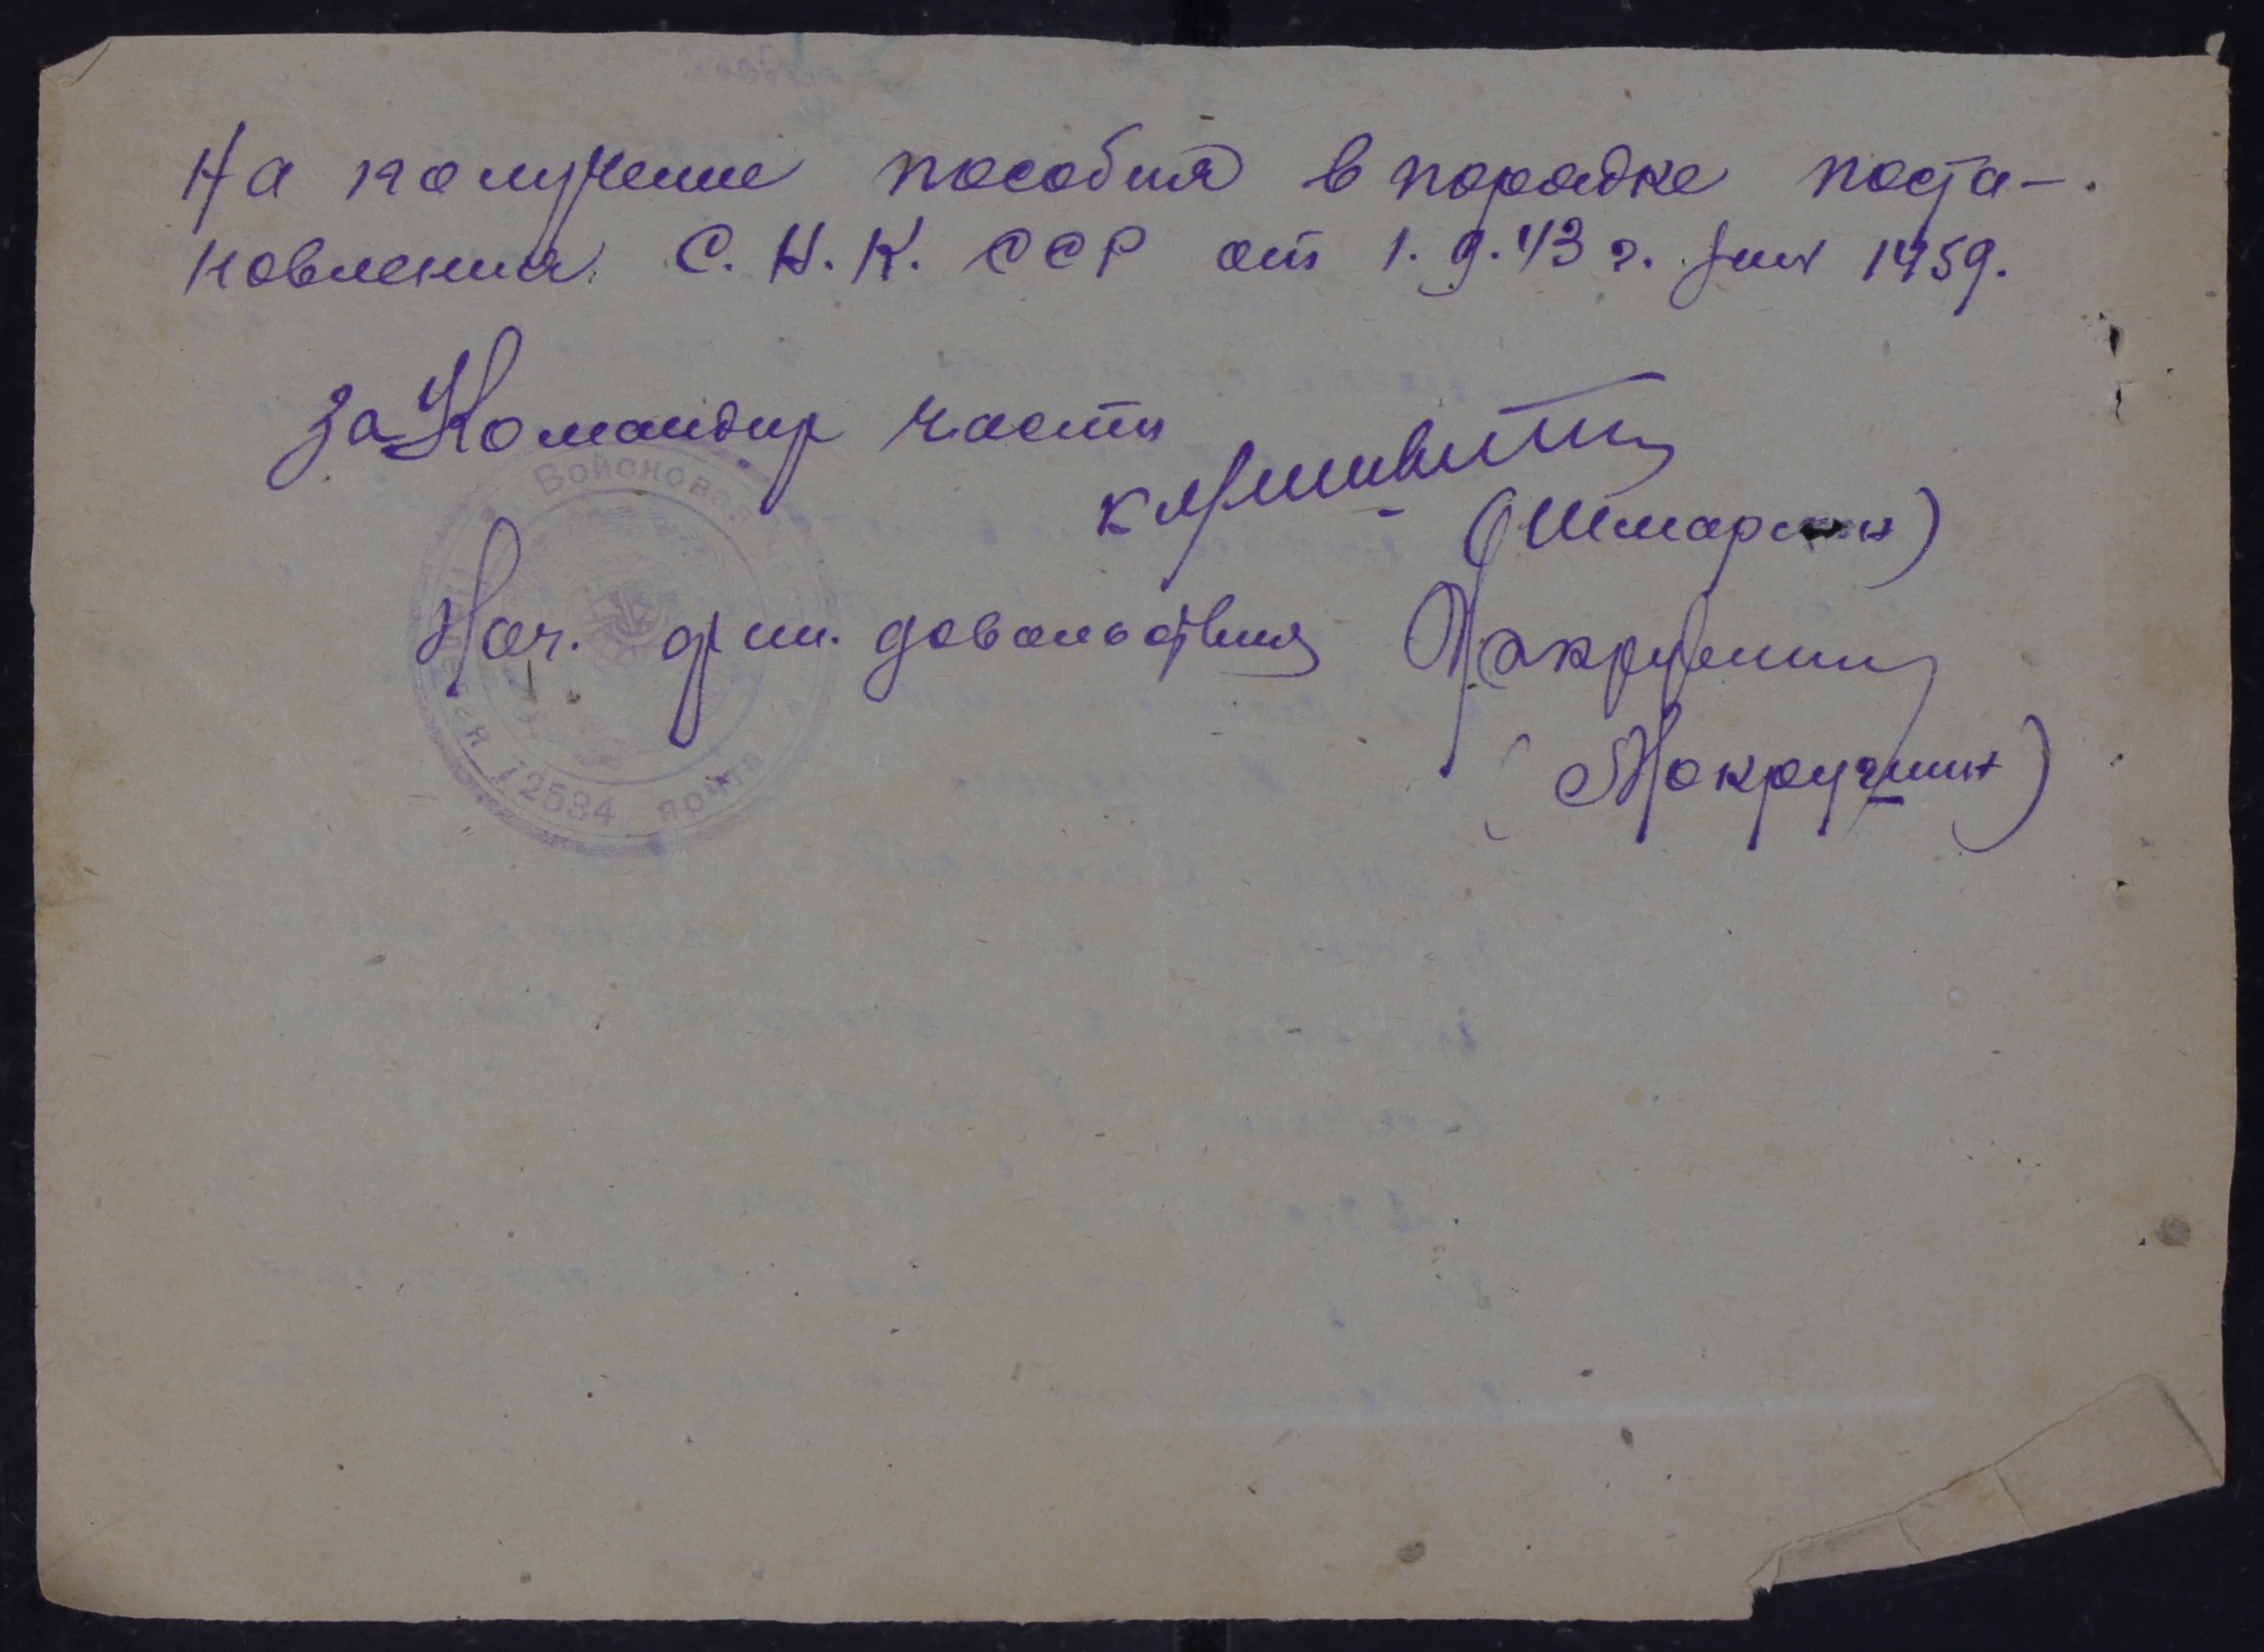 На получение пособия в порядке поста-
новления С. Н. К. ССР от 1.9.43 г. 1459.
За Командир части
(Шмарин)
Нач. фин. довольствия Мокрушин
(Мокрушин)
Войсковая
полевая почта
72534